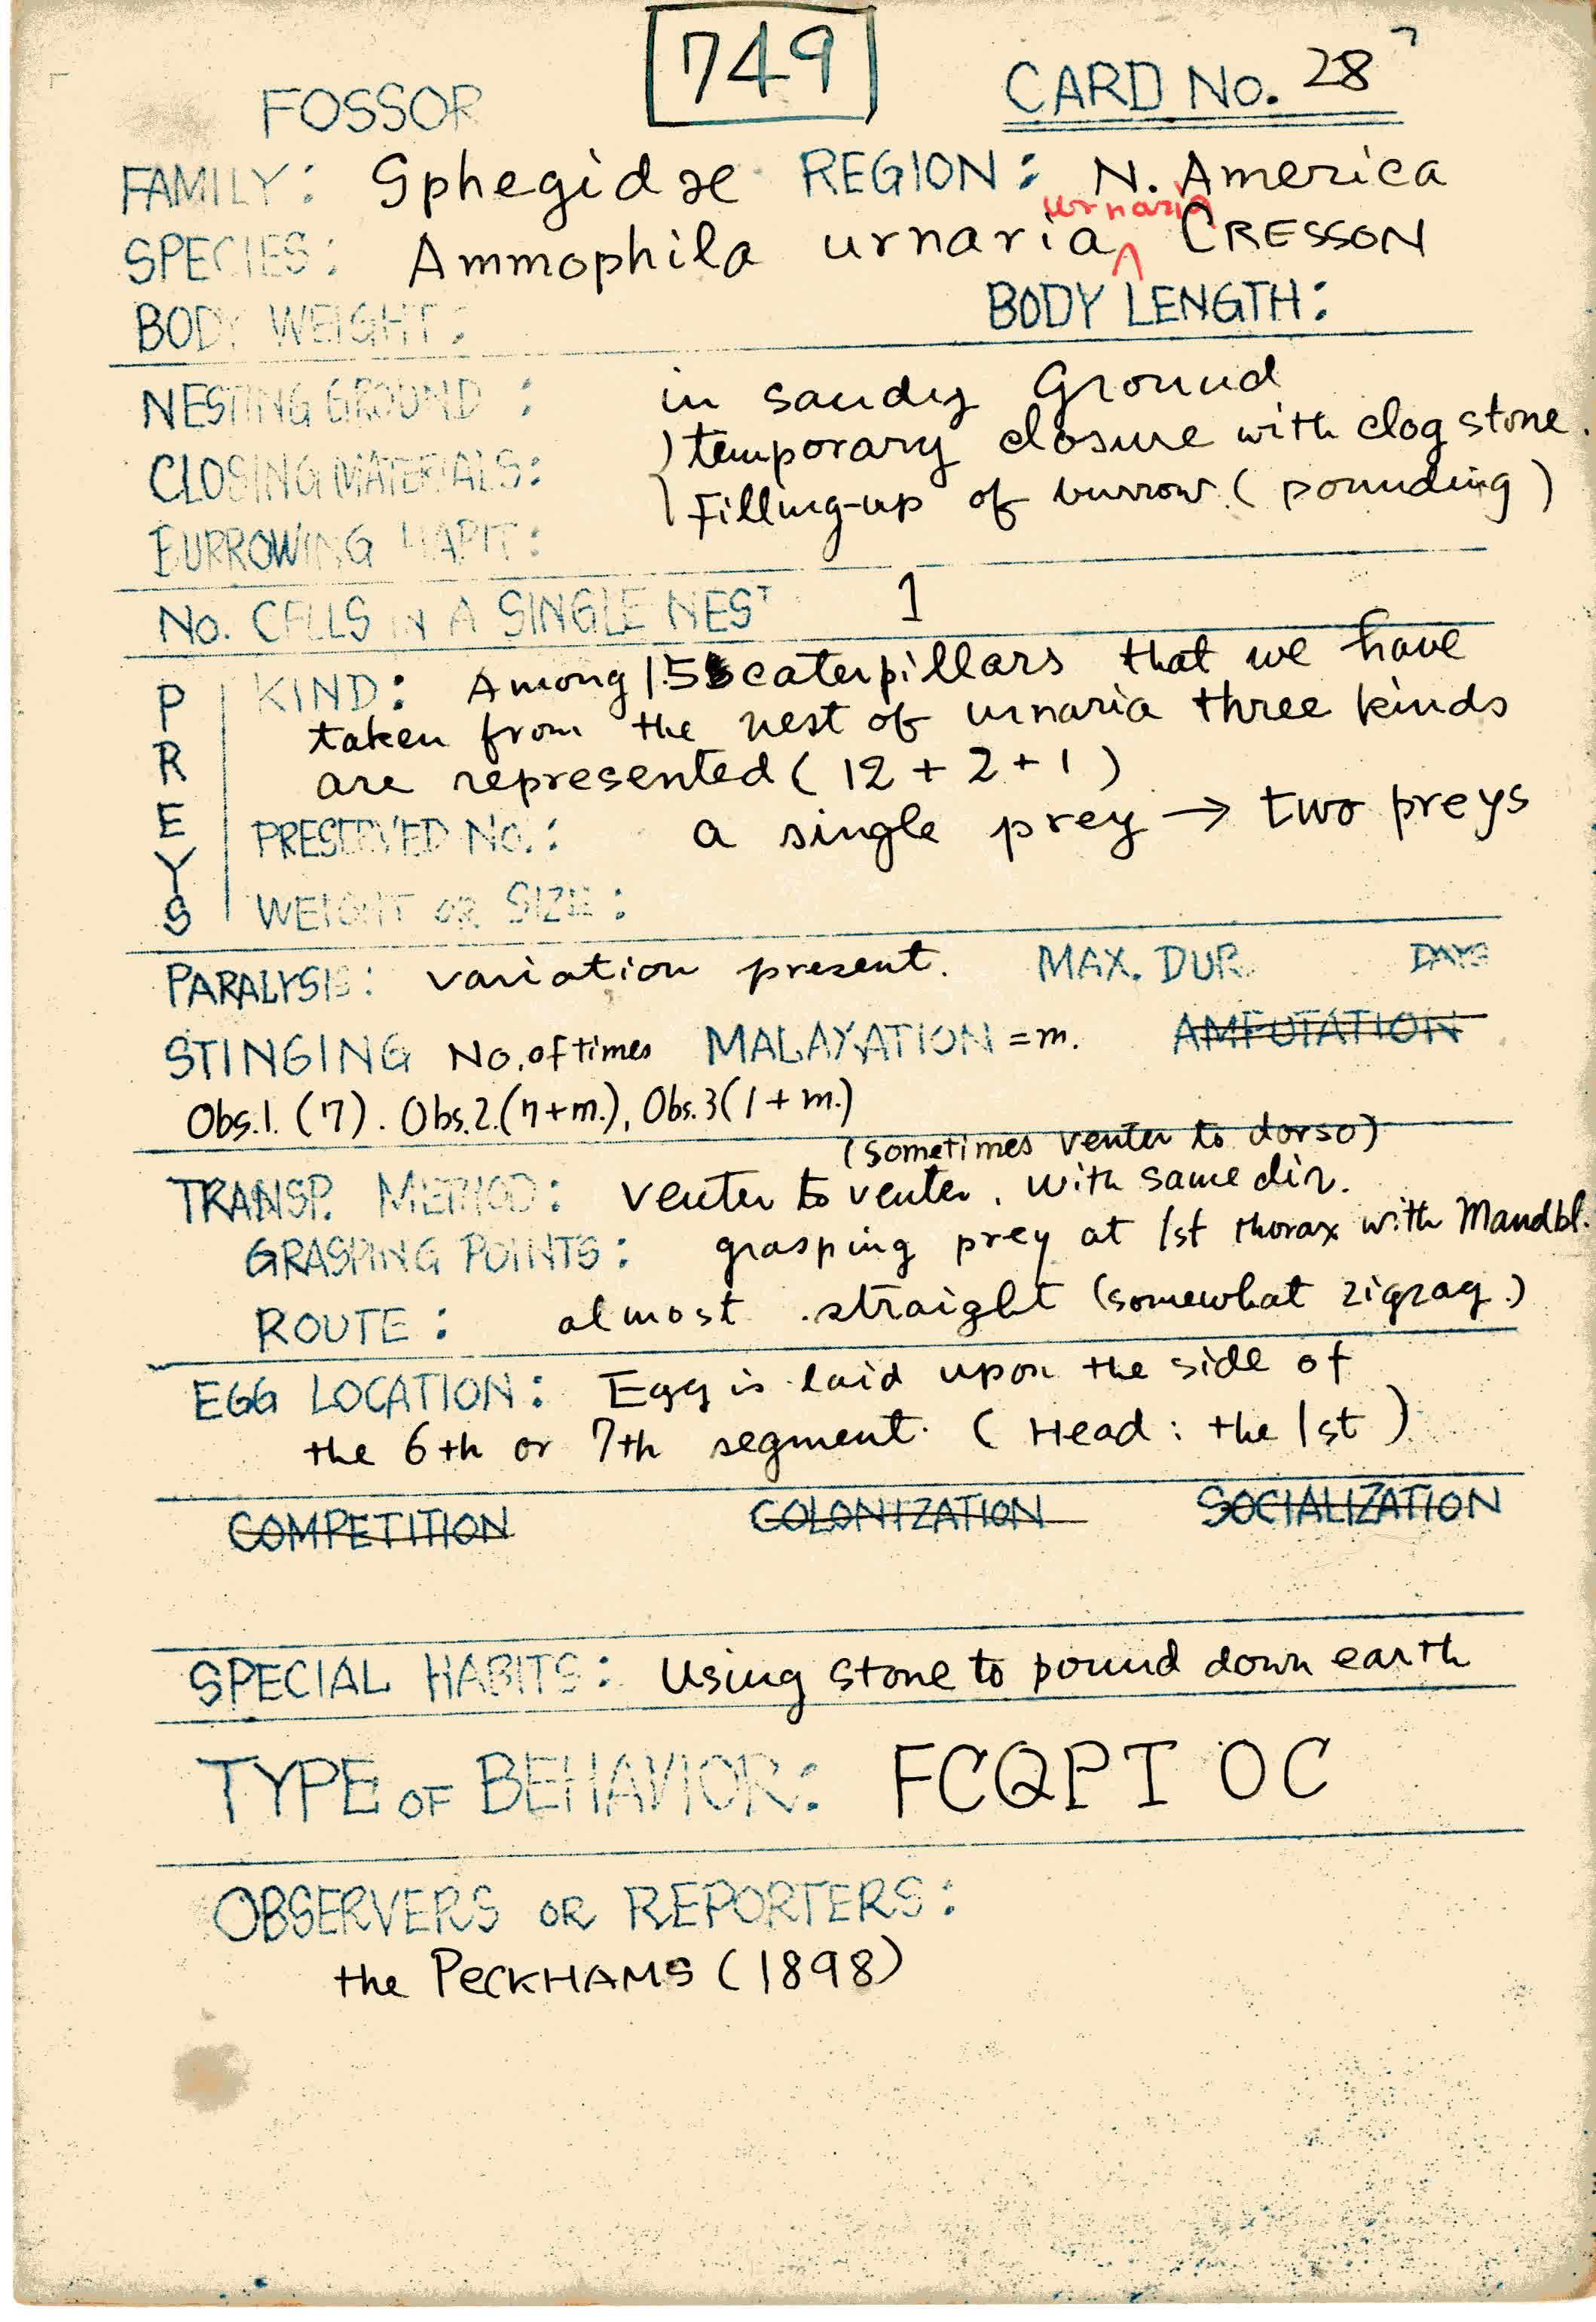 749
FOSSOR CARD No. 28
FAMILY: Sphegidæ REGION: N. America
urnaria
SPECIES: Ammophila urnaria ^ CRESSON
BODY WEIGHT: BODY LENGTH:
NESTING GROUND: in sandy Ground
CLOSING MATERIALS: temporary closure with clog stone.
Filling-up of burrow (pounding)
BURROWING HABIT:
No. CELLS IN A SINGLE NEST 1
PREYS
KIND: Among 15 caterpillars that we have
taken from the nest of urnaria three kinds
are represented (12 + 2 + 1)
PRESERVED No.: a single prey → two preys
WEIGHT OR SIZE:
PARALYSIS: variation present. MAX. DUR. DAYS
STINGING No. of times MALAXATION = m. AMPUTATION
Obs.1. (7). Obs.2. (7+m.), Obs.3 (1+m.)
(sometimes venter to dorso)
TRANSP. METHOD: venter to venter, with same dir.
GRASPING POINTS: grasping prey at 1st thorax with Mandbl.
ROUTE: almost straight (somewhat zigzag.)
EGG LOCATION: Egg is laid upon the side of
the 6th or 7th segment. (Head: the 1st)
COMPETITION COLONIZATION SOCIALIZATION
SPECIAL HABITS: Using stone to pound down earth
TYPE OF BEHAVIOR: FCQPI OC
OBSERVERS OR REPORTERS:
the PECKHAMS (1898)